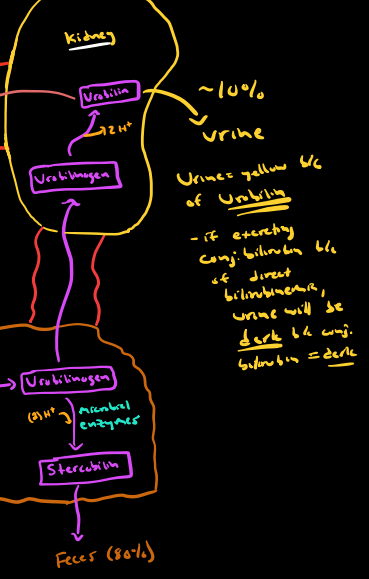 Kidney
Urobilin
~10%
2H+
urine
Urobilinogen
Urine = yellow b/c
of Urobilin
- if excreting
conj. bilirubin b/c
of direct
bilirubinemia,
urine will be
dark b/c conj.
bilirubin = dark
Urobilinogen
(2)H+
microbial
enzymes
Stercobilin
Feces (80%)